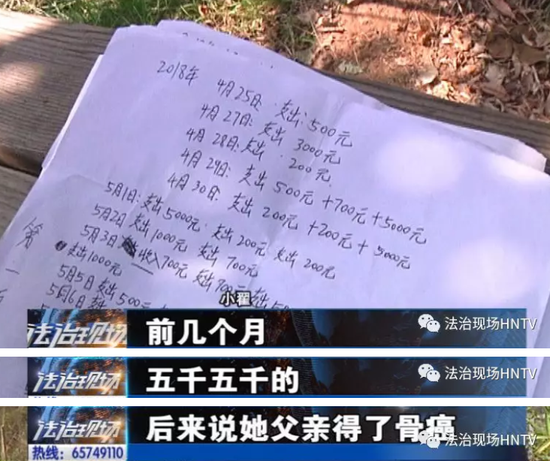 2018年 4月25日: 支出: 500元
4月27日: 支出 3000元
4月28日: 支出 200元
4月29日: 支出 500元+700元+5000元
4月30日: 支出 200元+200元+5000元
5月1日: 支出5000元 支出200元 支出200元
5月2日 支出1000元 支出700元
5月3日 收入700元 支出700元
支出1000元
5月5日 支出500元
5月6日
第一
小翟
法治现场
前几个月
法治现场HNTV
法治现场
五千五千的
法治现场HNTV
法治现场
热线: 65749110
后来说她父亲得了骨癌
法治现场HNTV